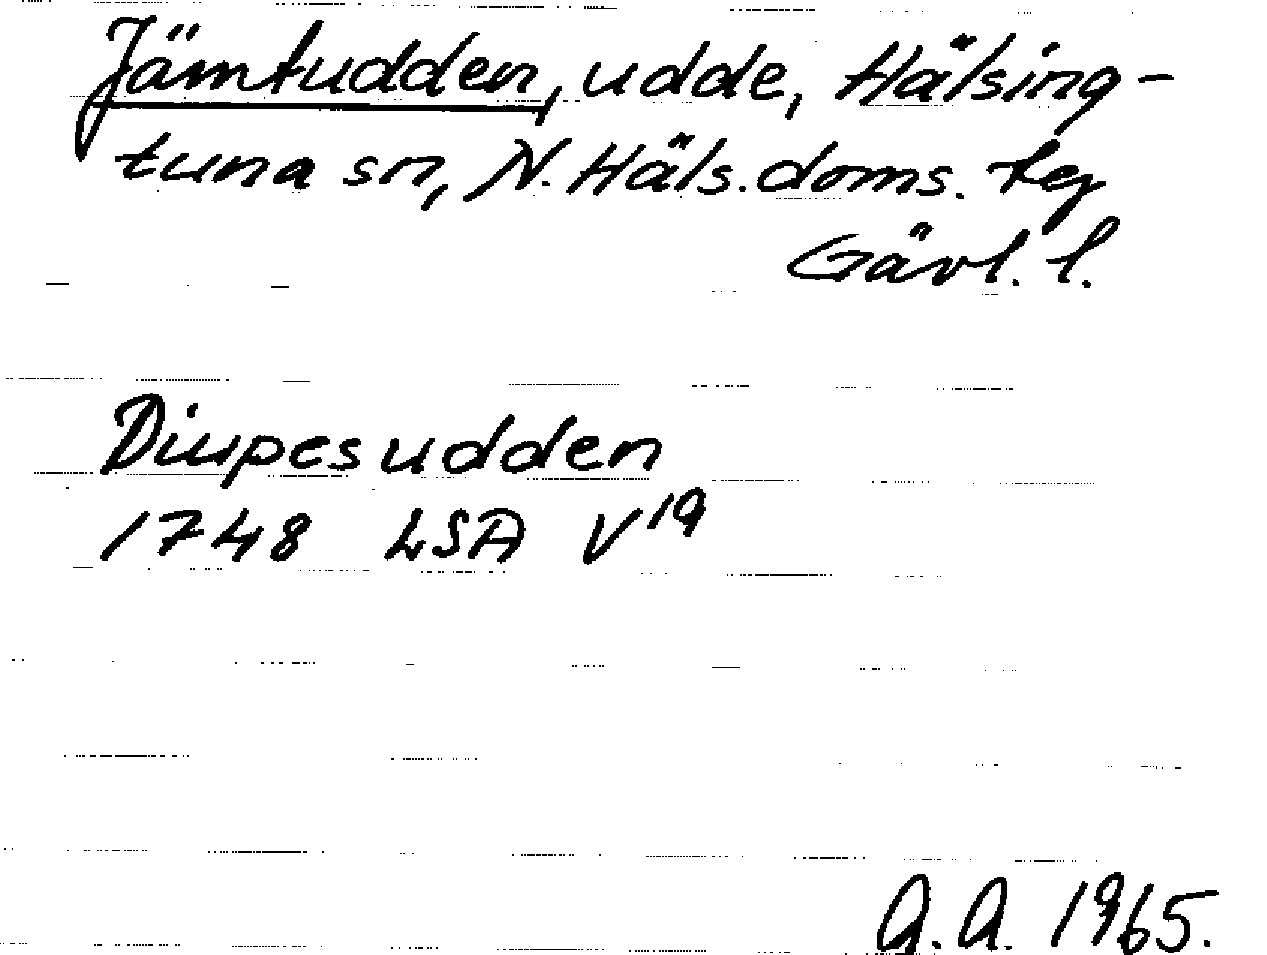 Jämtudden, udde, Hälsing-
tuna sn, N. Häls. doms. tg
Gävl. l.
Diupesudden
1748 LSA V 19
A.A. 1965.